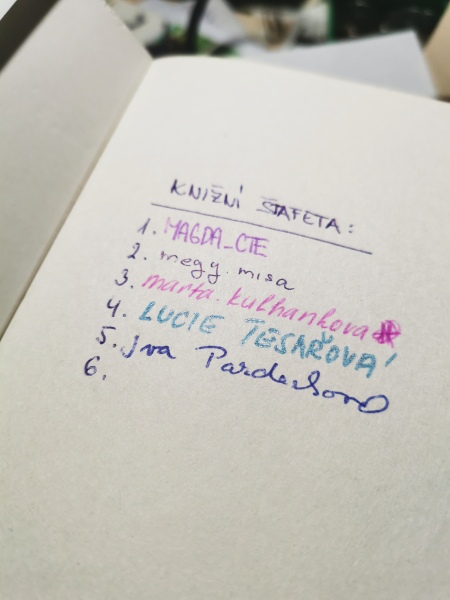 KNIŽNÍ ŠTAFETA:
1. MAGDA_CTE
2. megy.misa
3. marta.kulhankova
4. LUCIE TESAŘOVÁ
5. Iva
6.